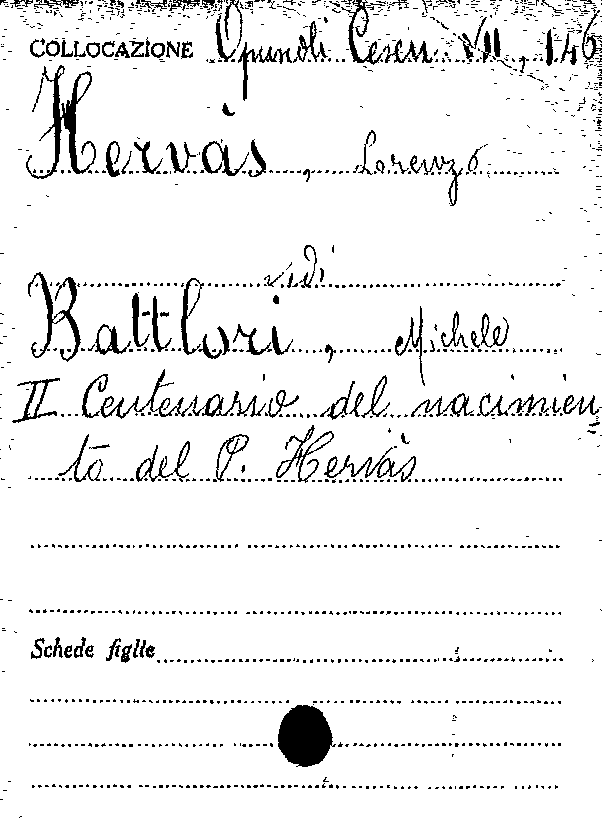 COLLOCAZIONE Opuscoli Cesen. VII, 146
Hervàs, Lorenzo
vedi
Battlori, Michele
II Centenario del nacimien
to del P. Hervàs
Schede figlie